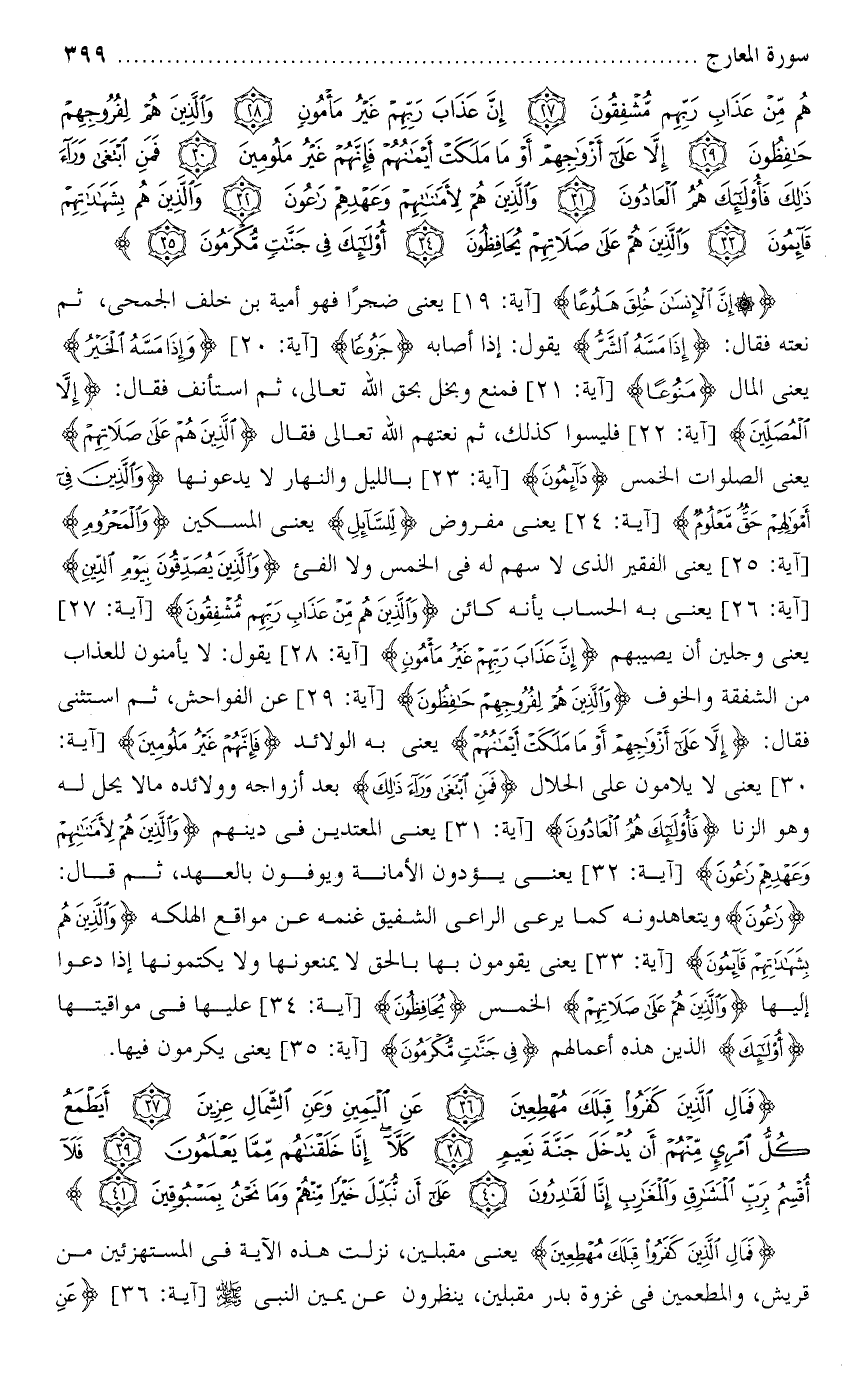 سورة المعارج ........................................................................ ٣٩٩
هُم مِّنْ عَذَابِ رَبِّهِم مُّشْفِقُونَ ٢٧ إِنَّ عَذَابَ رَبِّهِمْ غَيْرُ مَأْمُونٍ ٢٨ وَٱلَّذِينَ هُمْ لِفُرُوجِهِمْ
حَٰفِظُونَ ٢٩ إِلَّا عَلَىٰٓ أَزْوَٰجِهِمْ أَوْ مَا مَلَكَتْ أَيْمَٰنُهُمْ فَإِنَّهُمْ غَيْرُ مَلُومِينَ ٣٠ فَمَنِ ٱبْتَغَىٰ وَرَآءَ
ذَٰلِكَ فَأُوْلَٰٓئِكَ هُمُ ٱلْعَادُونَ ٣١ وَٱلَّذِينَ هُمْ لِأَمَٰنَٰتِهِمْ وَعَهْدِهِمْ رَٰعُونَ ٣٢ وَٱلَّذِينَ هُم بِشَهَٰدَٰتِهِمْ
قَآئِمُونَ ٣٣ وَٱلَّذِينَ هُمْ عَلَىٰ صَلَاتِهِمْ يُحَافِظُونَ ٣٤ أُوْلَٰٓئِكَ فِى جَنَّٰتٍ مُّكْرَمُونَ ٣٥ ﴾
﴿۞ إِنَّ ٱلْإِنسَٰنَ خُلِقَ هَلُوعًا﴾ [آية: ١٩] يعنى ضجرًا فهو أمية بن خلف الجمحى، ثم
نعته فقال: ﴿إِذَا مَسَّهُ ٱلشَّرُّ﴾ يقول: إذا أصابه ﴿جَزُوعًا﴾ [آية: ٢٠] ﴿وَإِذَا مَسَّهُ ٱلْخَيْرُ﴾
يعنى المال ﴿مَنُوعًا﴾ [آية: ٢١] فمنع وبخل بحق الله تعالى، ثم استأنف فقال: ﴿إِلَّا
ٱلْمُصَلِّينَ﴾ [آية: ٢٢] فليسوا كذلك، ثم نعتهم الله تعالى فقال ﴿ٱلَّذِينَ هُمْ عَلَىٰ صَلَاتِهِمْ﴾
يعنى الصلوات الخمس ﴿دَآئِمُونَ﴾ [آية: ٢٣] بالليل والنهار لا يدعونها ﴿وَٱلَّذِينَ فِىٓ
أَمْوَٰلِهِمْ حَقٌّ مَّعْلُومٌ﴾ [آية: ٢٤] يعنى مفروض ﴿لِّلسَّآئِلِ﴾ يعنى المسكين ﴿وَٱلْمَحْرُومِ﴾
[آية: ٢٥] يعنى الفقير الذى لا سهم له فى الخمس ولا الفئ ﴿وَٱلَّذِينَ يُصَدِّقُونَ بِيَوْمِ ٱلدِّينِ﴾
[آية: ٢٦] يعنى به الحساب بأنه كائن ﴿وَٱلَّذِينَ هُم مِّنْ عَذَابِ رَبِّهِم مُّشْفِقُونَ﴾ [آية: ٢٧]
يعنى وجلين أن يصيبهم ﴿إِنَّ عَذَابَ رَبِّهِمْ غَيْرُ مَأْمُونٍ﴾ [آية: ٢٨] يقول: لا يأمنون للعذاب
من الشفقة والخوف ﴿وَٱلَّذِينَ هُمْ لِفُرُوجِهِمْ حَٰفِظُونَ﴾ [آية: ٢٩] عن الفواحش، ثم استثنى
فقال: ﴿إِلَّا عَلَىٰٓ أَزْوَٰجِهِمْ أَوْ مَا مَلَكَتْ أَيْمَٰنُهُمْ﴾ يعنى به الولائد ﴿فَإِنَّهُمْ غَيْرُ مَلُومِينَ﴾ [آية:
٣٠] يعنى لا يلامون على الحلال ﴿فَمَنِ ٱبْتَغَىٰ وَرَآءَ ذَٰلِكَ﴾ بعد أزواجه وولائده مالا يحل له
وهو الزنا ﴿فَأُوْلَٰٓئِكَ هُمُ ٱلْعَادُونَ﴾ [آية: ٣١] يعنى المعتدين فى دينهم ﴿وَٱلَّذِينَ هُمْ لِأَمَٰنَٰتِهِمْ
وَعَهْدِهِمْ رَٰعُونَ﴾ [آية: ٣٢] يعنى يؤدون الأمانة ويوفون بالعهد، ثم قال:
﴿رَٰعُونَ﴾ ويتعاهدونه كما يرعى الراعى الشفيق غنمه عن مواقع الهلكه ﴿وَٱلَّذِينَ هُم
بِشَهَٰدَٰتِهِمْ قَآئِمُونَ﴾ [آية: ٣٣] يعنى يقومون بها بالحق لا يمنعونها ولا يكتمونها إذا دعوا
إليها ﴿وَٱلَّذِينَ هُمْ عَلَىٰ صَلَاتِهِمْ﴾ الخمس ﴿يُحَافِظُونَ﴾ [آية: ٣٤] عليها فى مواقيتها
﴿أُوْلَٰٓئِكَ﴾ الذين هذه أعمالهم ﴿فِى جَنَّٰتٍ مُّكْرَمُونَ﴾ [آية: ٣٥] يعنى يكرمون فيها.
﴿فَمَالِ ٱلَّذِينَ كَفَرُواْ قِبَلَكَ مُهْطِعِينَ ٣٦ عَنِ ٱلْيَمِينِ وَعَنِ ٱلشِّمَالِ عِزِينَ ٣٧ أَيَطْمَعُ
كُلُّ ٱمْرِىٍٕ مِّنْهُمْ أَن يُدْخَلَ جَنَّةَ نَعِيمٍ ٣٨ كَلَّآ ۖ إِنَّا خَلَقْنَٰهُم مِّمَّا يَعْلَمُونَ ٣٩ فَلَآ
أُقْسِمُ بِرَبِّ ٱلْمَشَٰرِقِ وَٱلْمَغَٰرِبِ إِنَّا لَقَٰدِرُونَ ٤٠ عَلَىٰٓ أَن نُّبَدِّلَ خَيْرًا مِّنْهُمْ وَمَا نَحْنُ بِمَسْبُوقِينَ ٤١ ﴾
﴿فَمَالِ ٱلَّذِينَ كَفَرُواْ قِبَلَكَ مُهْطِعِينَ﴾ يعنى مقبلين، نزلت هذه الآية فى المستهزئين من
قريش، والمطعمين فى غزوة بدر مقبلين، ينظرون عن يمين النبى ﷺ [آية: ٣٦] ﴿عَنِ